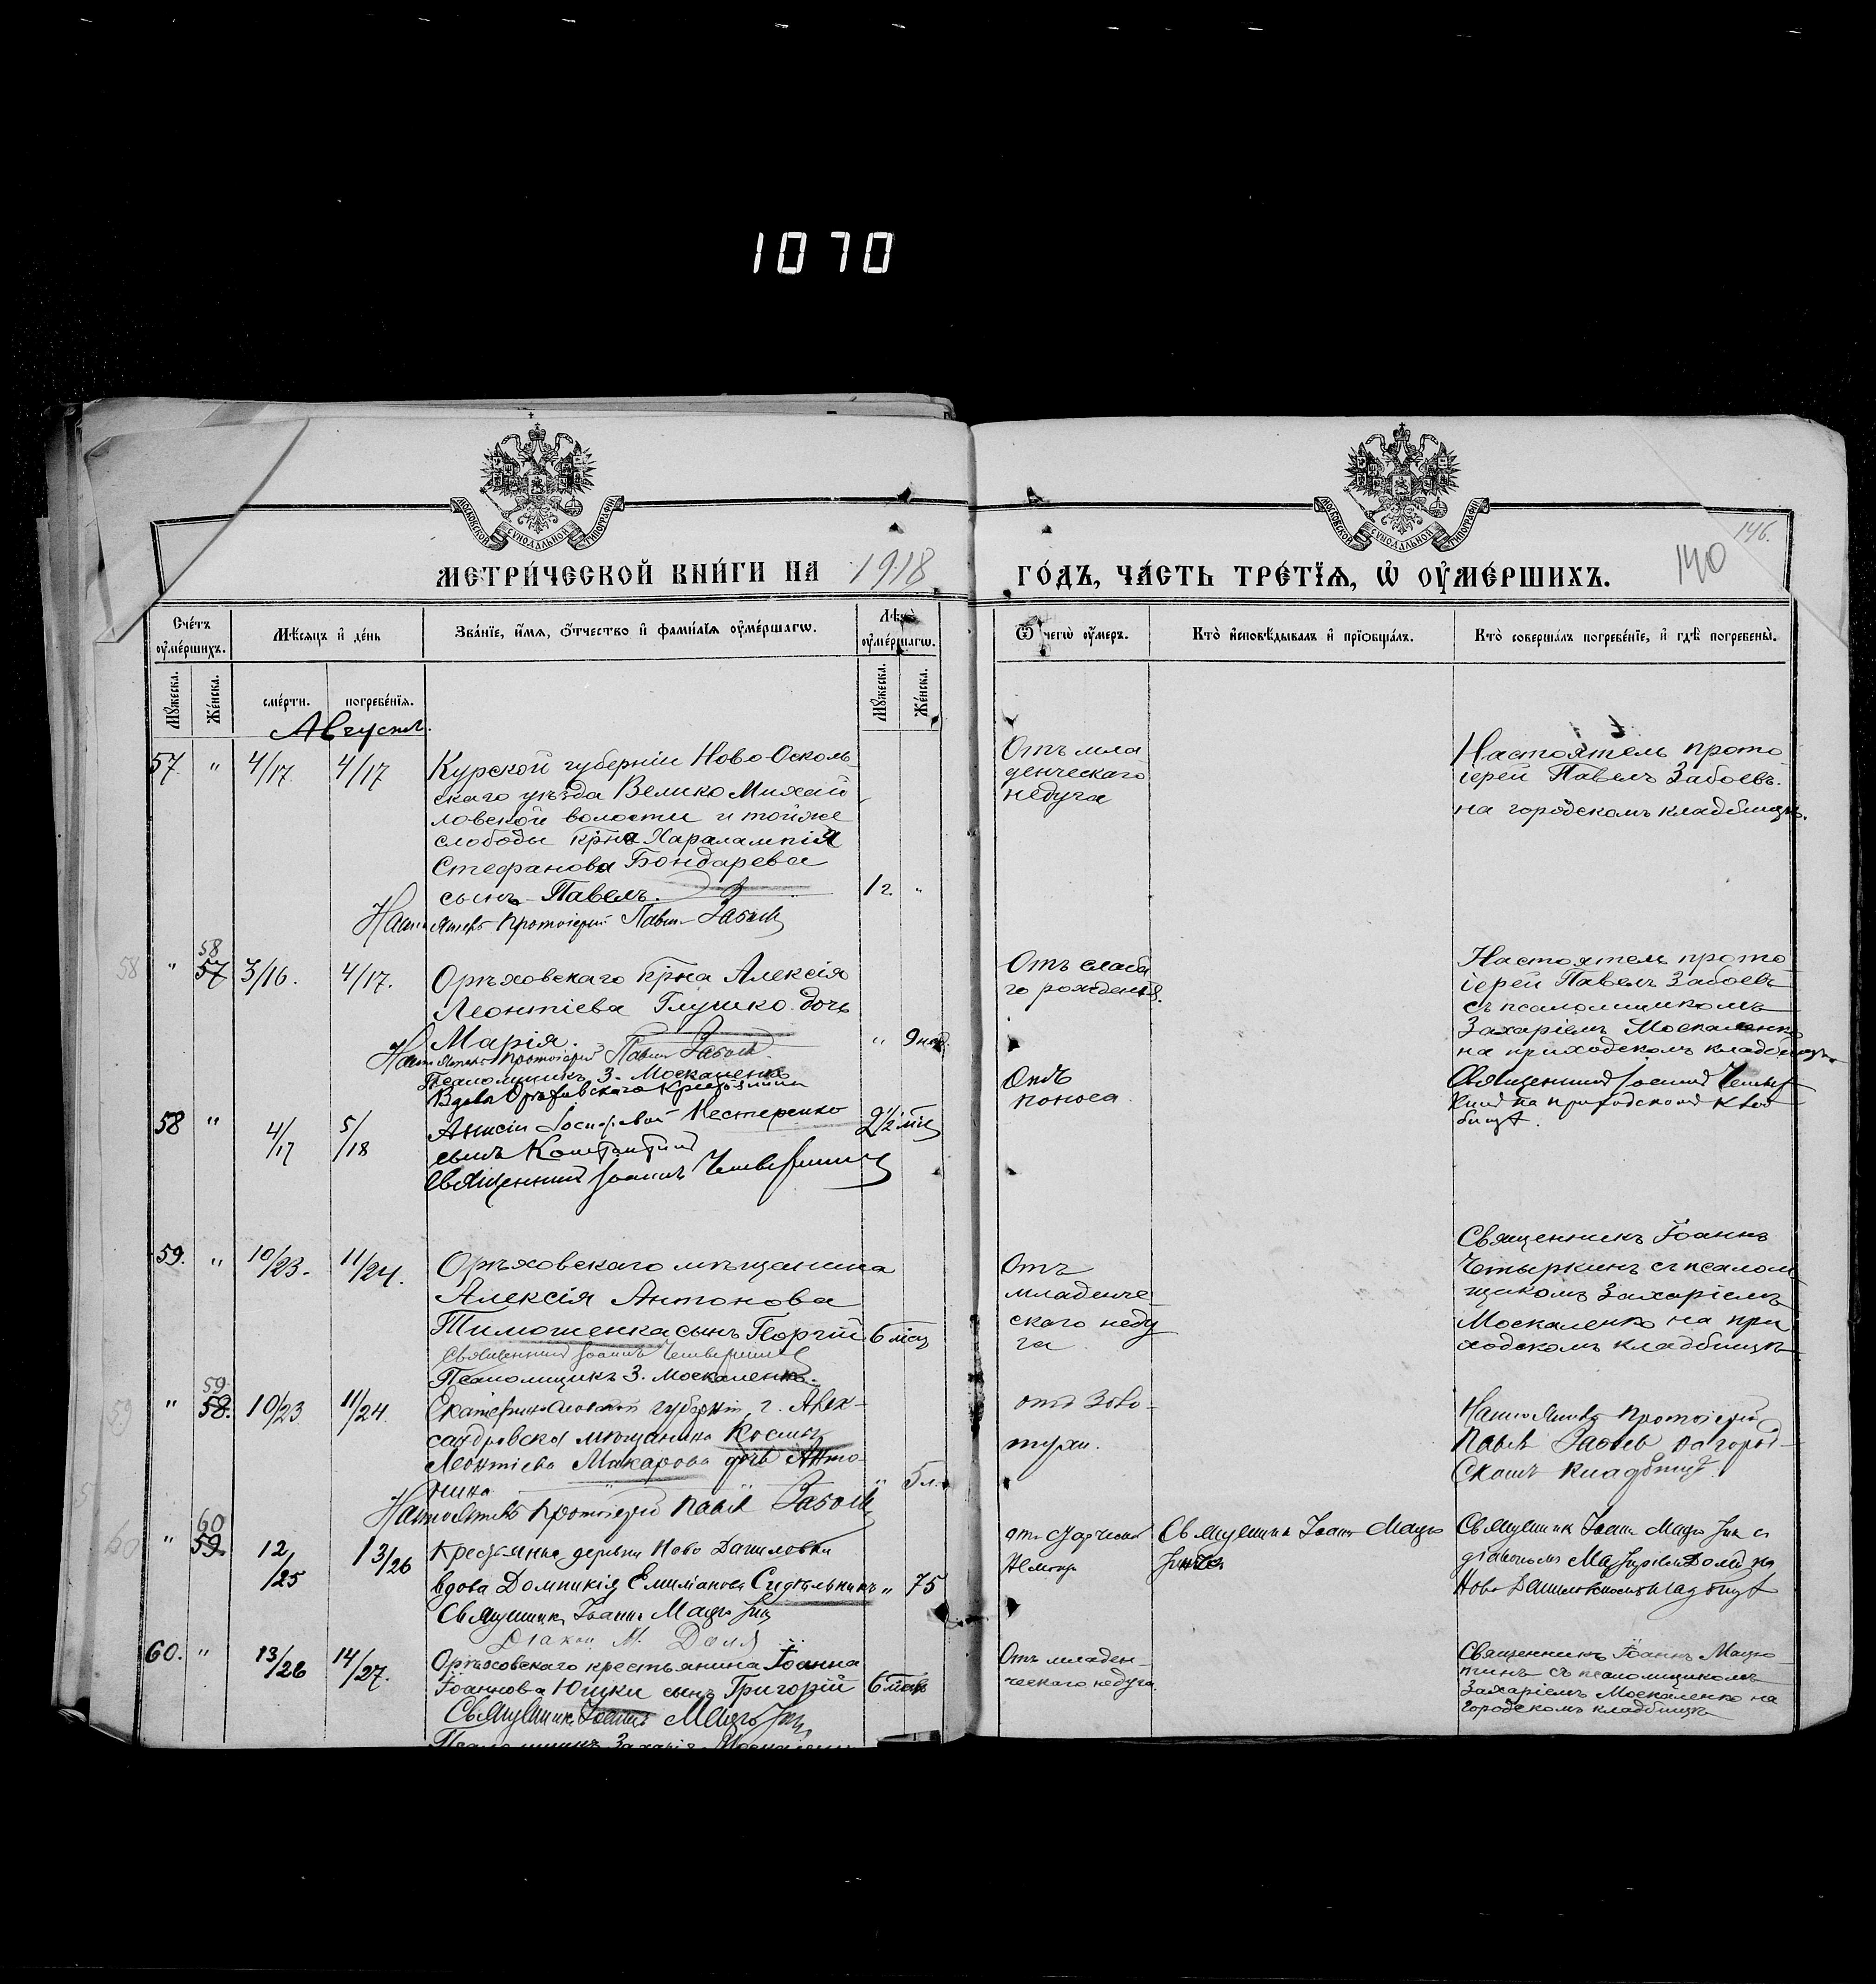 1070
МОСКОВСКОЙ СѴНОДАЛЬНОЙ ТИПОГРАФІИ
МОСКОВСКОЙ СѴНОДАЛЬНОЙ ТИПОГРАФІИ
146.
140
МЕТРИ́ЧЕСКОЙ КНИ́ГИ НА 1918 ГО́ДЪ, ЧА́СТЬ ТРЕ́ТЇѦ, Ѡ҆ ОУ҆МЕ́РШИХЪ.
Сче́тъ оу҆ме́ршихъ.
Мѣ́сѧцъ и҆ де́нь
Зва́нїе, и҆́мѧ, ѻ҆́тчество и҆ фами́лїѧ оу҆ме́ршагѡ.
Лѣ́та оу҆ме́ршагѡ.
Ѿ чегѡ̀ оу҆́меръ.
Кто̀ и҆сповѣ́дывалъ и҆ прїѡбща́лъ.
Кто̀ соверша́лъ погребе́нїе, и҆ гдѣ̀ погребены̀.
Мꙋ́жеска. Же́нска. сме́рти. погребе́нїѧ. Мꙋ́жеска. Же́нска.
Августъ.
57. " 4/17 4/17
Курской губерніи Ново-Осколь-
скаго уѣзда Велико Михай
ловской волости и тойже
слободы крна Харалампія
Стефанова Бондарева
сынъ Павелъ. 1 г. "
Настоятель Протоіерей Павелъ Забоев
Отъ мла
денческаго
недуга
Настоятель прото
іерей Павелъ Забоевъ.
на городскомъ кладбищѣ.
58 " 58 57 3/16. 4/17.
Орѣховскаго крна Алексія
Леонтіева Глушко дочь
Марія. " 9 нед.
Настоятель Протоіерей Павелъ Забоев.
Псаломщикъ З. Москаленко
Отъ слаба
го рожденія.
Настоятель прото
іерей Павелъ Забоевъ
съ псаломщикомъ
Захаріемъ Москаленко
на приходскомъ кладбищѣ.
58 " 4/17 5/18
Вдова Орѣховскаго Крестьянина
Анисіи Нестеренко 2½ мѣс
сынъ Константинъ
Священникъ Іоаннъ Четыркинъ
Отъ
поноса.
Священникъ Іоаннъ Четыр
кинъ на приходскомъ клад
бищѣ.
59. " 10/23. 11/24.
Орѣховскаго мѣщанина
Алексія Антонова
Тимошенка сынъ Георгій 6 міс
Священникъ Іоаннъ Четыркинъ
Псаломщикъ З. Москаленко.
Отъ
младенче
скаго неду
га
Священникъ Іоаннъ
Четыркинъ съ псалом
щикомъ Захаріемъ
Москаленко на при
ходскомъ кладбищѣ
59 " 59 58. 10/23 11/24.
Екатеринославской губерніи, г. Алек-
сандровска мѣщанина Космы
Леонтіева Макарова дочь Анто-
нина " 5 л.
Настоятель Протоіерей Павелъ Забоев
отъ золо-
тухи.
Настоятель Протоіерей
Павелъ Забоев на город-
скомъ кладбищѣ.
60 " 60 59. 12/25 13/26
Крестьянка деревни Ново Даниловки
вдова Домникія Емиліанова " 75
Священникъ Іоаннъ
Діакон М. Доля
отъ старческой
немощи
Священникъ Іоаннъ
Священникъ Іоаннъ
на
Ново Даниловскомъ кладбищѣ
60. " 13/26 14/27.
Орѣховскаго крестьянина Іоанна
Іоаннова Юшки сынъ Григорій 6 мѣс
Священникъ Іоаннъ
Псаломщикъ Захарія Москаленко
Отъ младен-
ческаго недуга.
Священникъ Іоаннъ
съ псаломщикомъ
Захаріемъ Москаленко на
городскомъ кладбищѣ